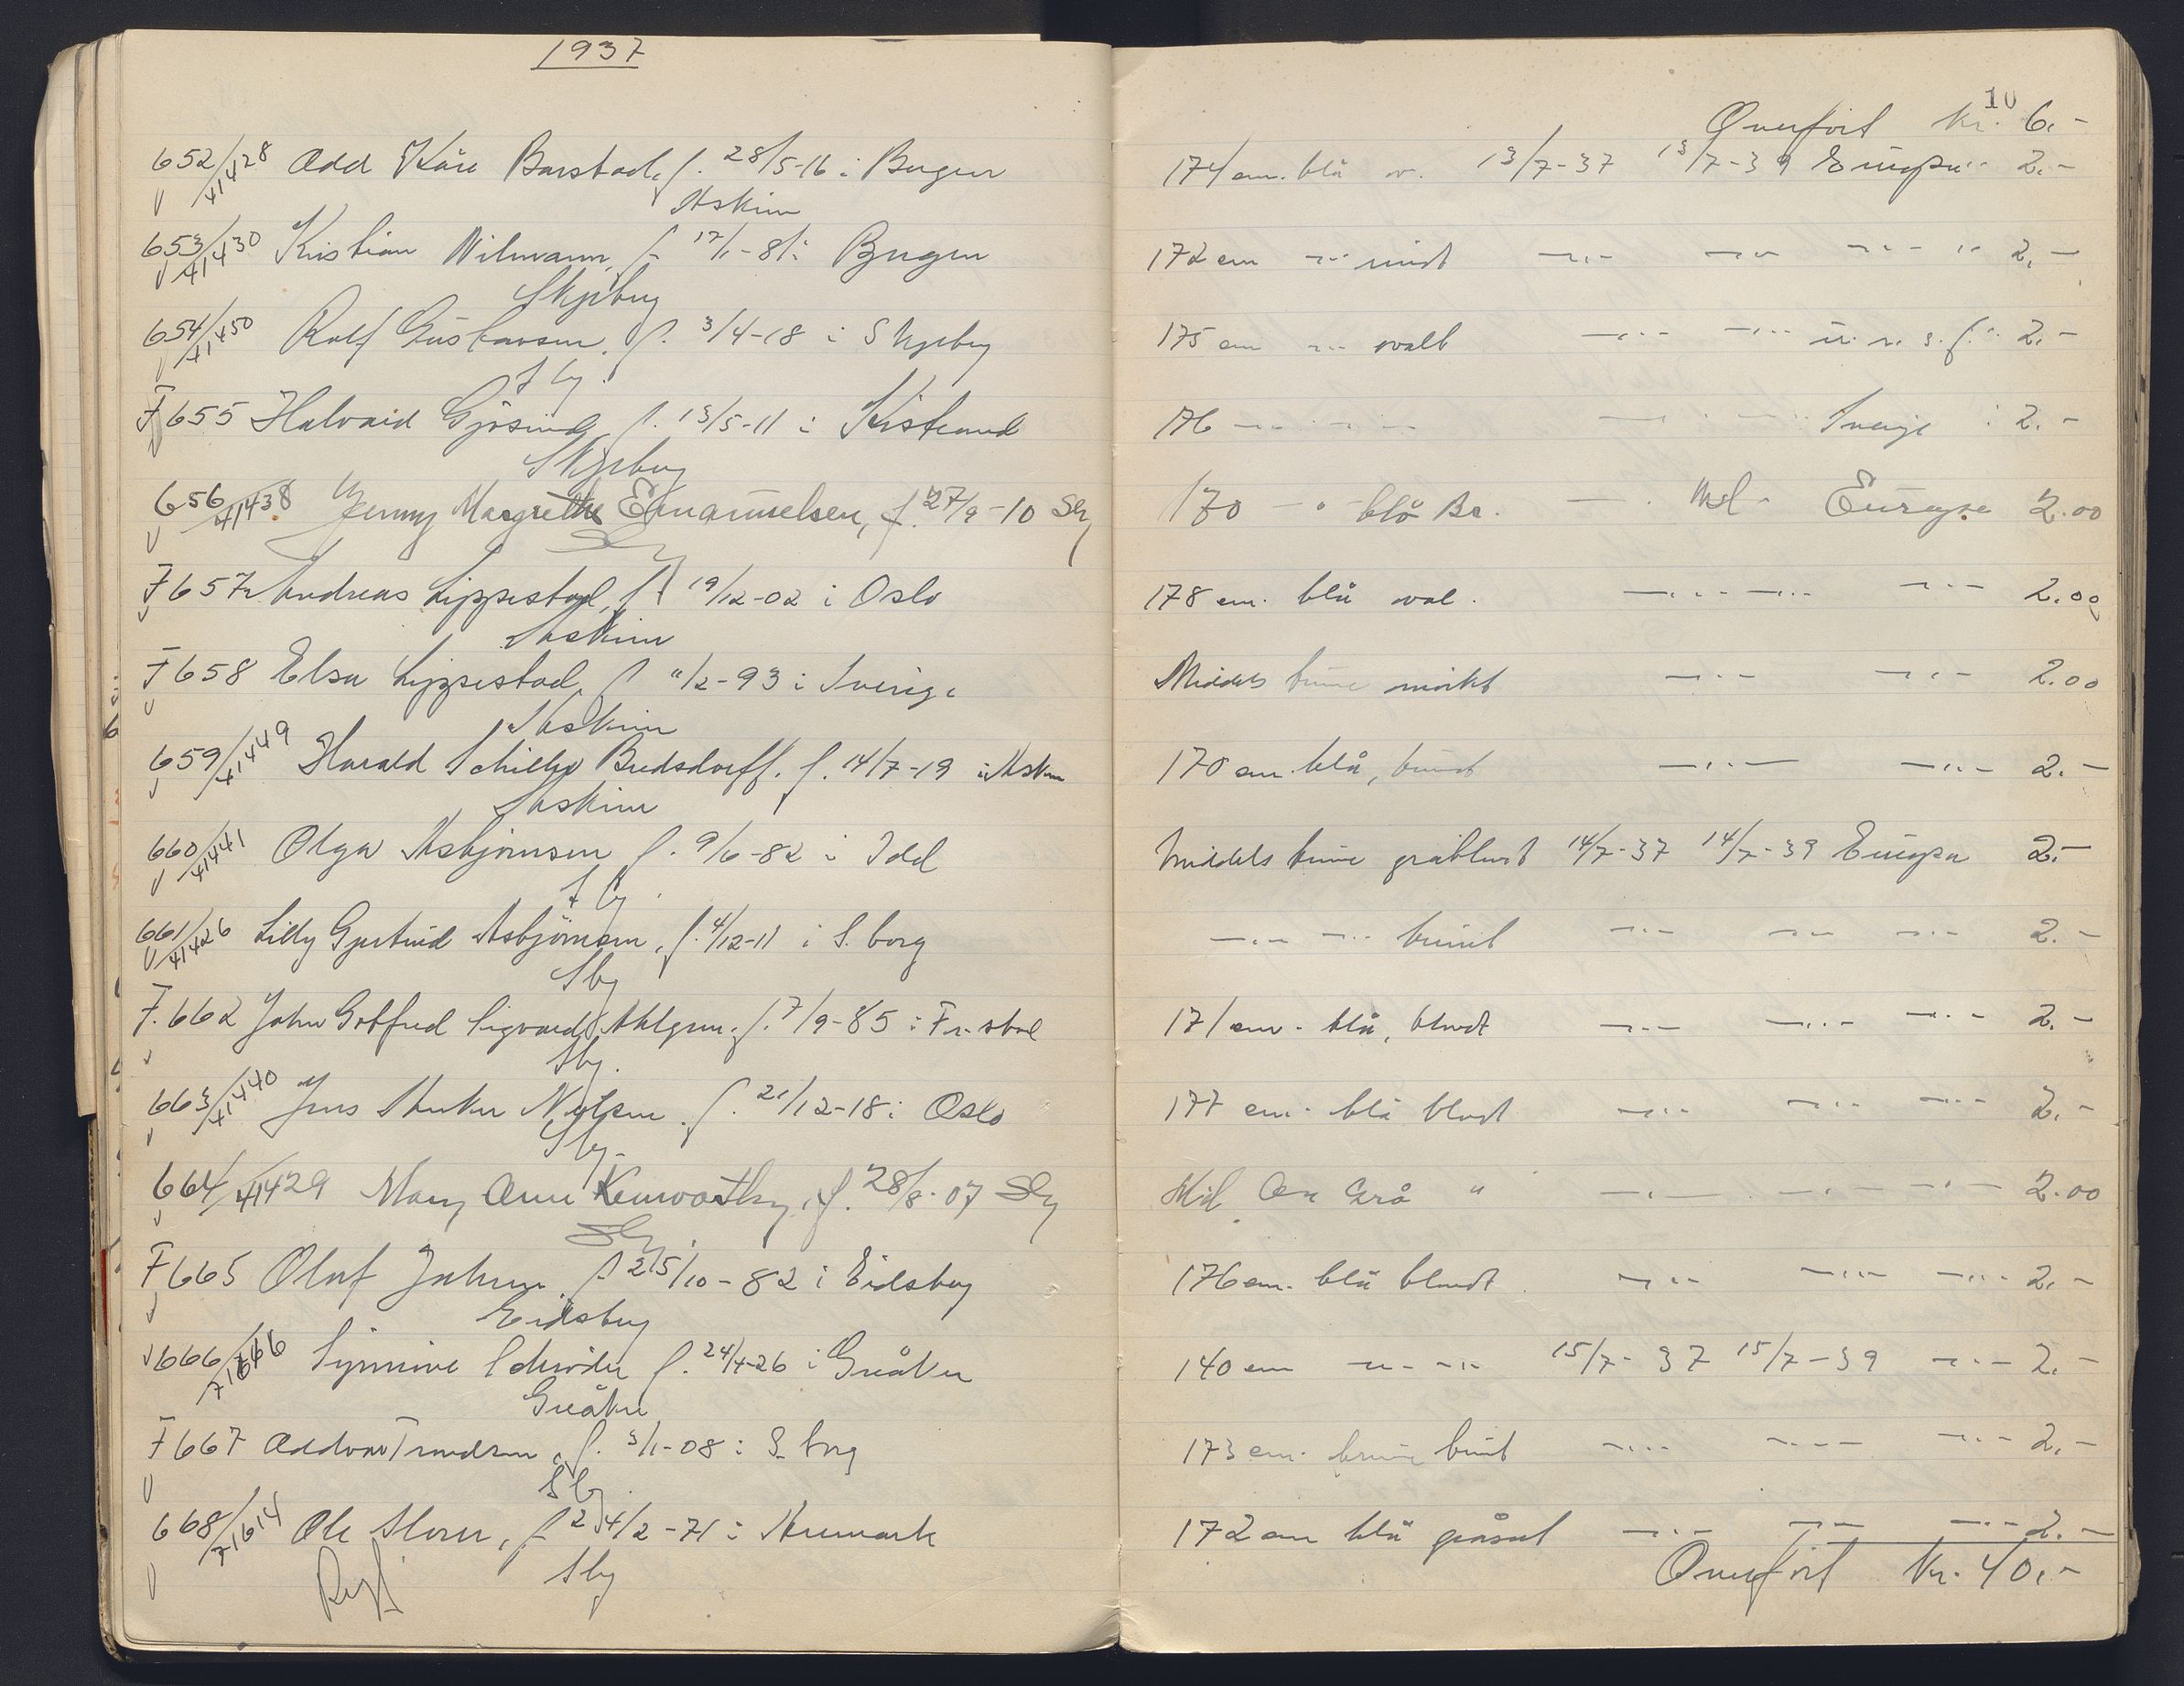 1937
652/41428 Odd Kåre Barstad, f. 28/5-16 i Bergen
Askim
653/41430 Kristian Wilmann, f. 17/1-81 i Bergen
Skjeberg
654/41450 Rolf Gustavsen, f. 3/4-18 i Skjeberg
Sbg.
F 655 Halvard Gjøsing, f. 13/5-11 i Kistrand
Skjeberg
656/41438 Jenny Margrethe Emanuelsen, f. 27/9-10 Sbg
Sbg
F 657 Andreas Lippestad, f. 19/12-02 i Oslo
Askim
F 658 Elsa Lippestad, f. 11/2-93 i Sverige
Askim
659/41449 Harald Budsdorff. f. 14/7-19 i Askim
Askim
660/41441 Olga Asbjørnsen f. 9/6-82 i Idd
Sbg.
661/41426 Lilly Gjertrud Asbjørnsen, f. 4/12-11 i S.borg
Sbg
F. 662 John Gotfred Sigvard Ahlgren. f. 7/9-85 i Fr.stad
Sbg.
663/41440 Jens Nilsen f. 21/12-18 i Oslo
Sbg.
664/41429 Mary Ann Kenworthy, f. 28/8-07 Sbg
Sbg.
F 665 Olaf Jahren f. 25/10-82 i Eidsberg
Eidsberg
666/71646 Synnøve Schrøder f. 24/4-26 i Greåker
Greåker
F 667 Oddvar Trondsen, f. 3/1-08 i S.borg
Sbg.
668/71614 Ole f. 24/2-71 i Aremark
Sbg
10
Overført kr. 6.-
174 cm. blå ov. 13/7-37 13/7-39 Europa 2.-
172 cm -"- rundt -"- -"- -"- " 2.-
175 cm -"- ovalt -"- -"- 2.-
176 -"- -"- -"- -"- Sverige 2.-
170 - " - blå Br. -"- Europa 2.00
178 cm. blå oval. -"- -"- -"- 2.00
Middels brune mørkt -"- -"- 2.00
170 cm. blå, brunt -"- -"- 2.-
Middels brune gråblondt 14/7-37 14/7-39 Europa 2.-
-"- -"- brunt -"- -"- -"- 2.-
171 cm. blå, blondt -"- -"- -"- 2.-
177 cm. blå blondt -"- -"- -"- 2.-
Mid Grå " -"- -"- -"- 2.00
176 cm. blå blondt -"- -"- -"- 2.-
140 cm -"- -"- 15/7-37 15/7-39 -"- 2.-
173 cm. brune brunt -"- -"- -"- 2.-
172 cm blå -"- -"- -"- 2.-
Overført Kr. 40.-